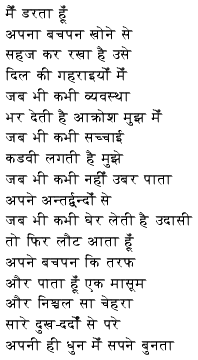 मैं डरता हूँ
अपना बचपन खोने से
सहज कर रखा है उसे
दिल की गहराइयों में
जब भी कभी व्यवस्था
भर देती है आक्रोश मुझ में
जब भी कभी सच्चाई
कडवी लगती है मुझे
जब भी कभी नहीं उबर पाता
अपने अन्तर्द्वन्दों से
जब भी कभी घेर लेती है उदासी
तो फिर लौट आता हूँ
अपने बचपन कि तरफ
और पाता हूँ एक मासूम
और निश्चल सा चेहरा
सारे दुख-दर्दों से परे
अपनी ही धुन में सपने बुनता